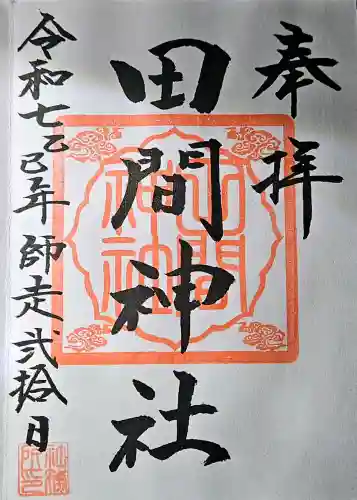 奉拝
田間神社
令和七乙巳年師走弐拾日
田間神社